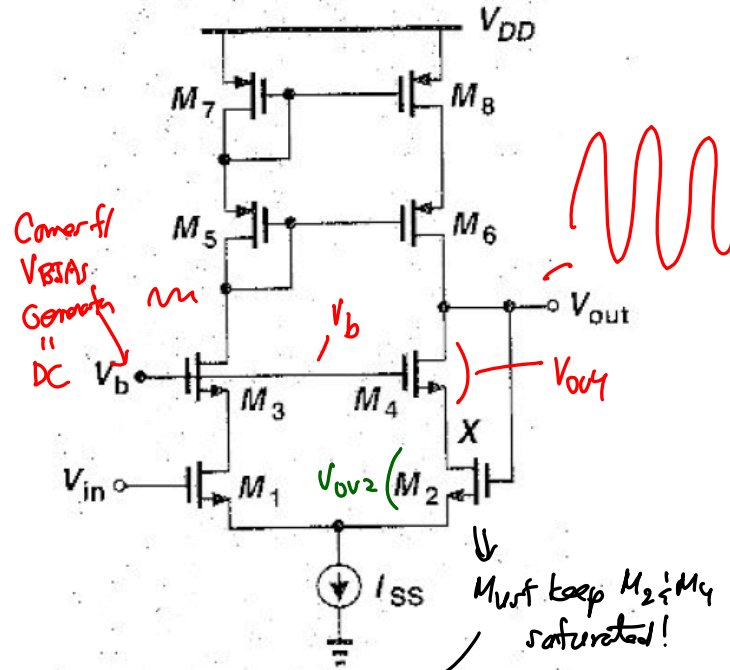 V_DD
M_7
M_8
M_5
M_6
Comes f/
V_BIAS
Generator
"
DC
V_b
V_b
V_out
M_3
M_4
V_OV4
X
V_in
M_1
V_OV2
M_2
I_SS
Must keep M_2 & M_4
saturated!